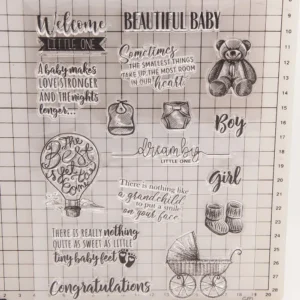 Welcome
LITTLE ONE
BEAUTIFUL BABY
A baby makes
LOVE STRONGER
AND THE nights
longer...
Sometimes
THE SMALLEST THINGS
TAKE UP THE MOST ROOM
IN OUR
heart.
Boy
The Best
is yet
to
Come
dream big
LITTLE ONE
Girl
There is nothing like
a grandchild
to put a smile
on your face
THERE IS REALLY nothing
QUITE AS SWEET AS LITTLE
tiny baby feet
Congratulations